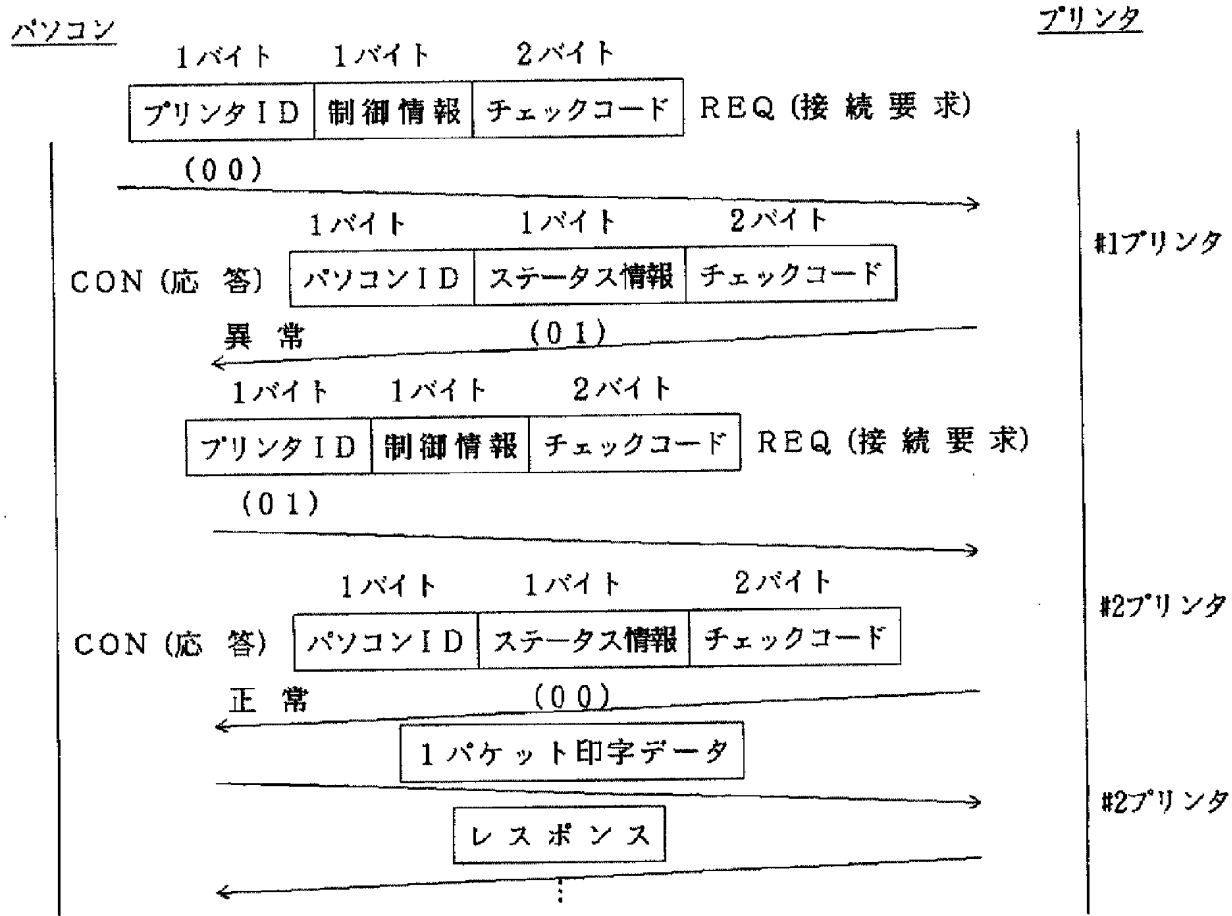 パソコン
プリンタ
1バイト 1バイト 2バイト
プリンタID 制御情報 チェックコード REQ(接続要求)
(00)
1バイト 1バイト 2バイト
#1プリンタ
CON(応答) パソコンID ステータス情報 チェックコード
異常 (01)
1バイト 1バイト 2バイト
プリンタID 制御情報 チェックコード REQ(接続要求)
(01)
1バイト 1バイト 2バイト
#2プリンタ
CON(応答) パソコンID ステータス情報 チェックコード
正常 (00)
1パケット印字データ
#2プリンタ
レスポンス